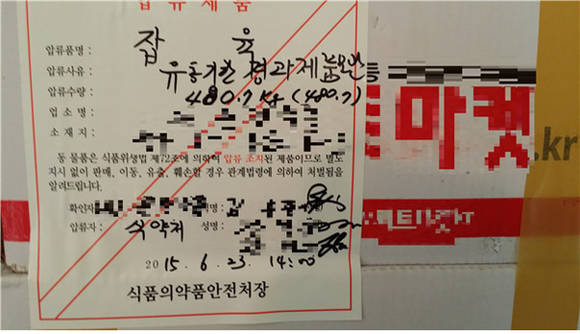 압류제품
압류품명 : 잡육
압류사유 : 유통기한 경과제품보관
압류수량 : 480.7 kg (480.7)
업 소 명 :
소 재 지 :
동 물품은 식품위생법 제72조에 의하여 압류 조치된 제품이므로 별도
지시 없이 판매, 이동, 유출, 훼손한 경우 관계법령에 의하여 처벌됨을
알려드립니다.
확인자
압류자 : 식약처 성명 :
2015. 6. 23. 14:00
식품의약품안전처장
마켓
.kr